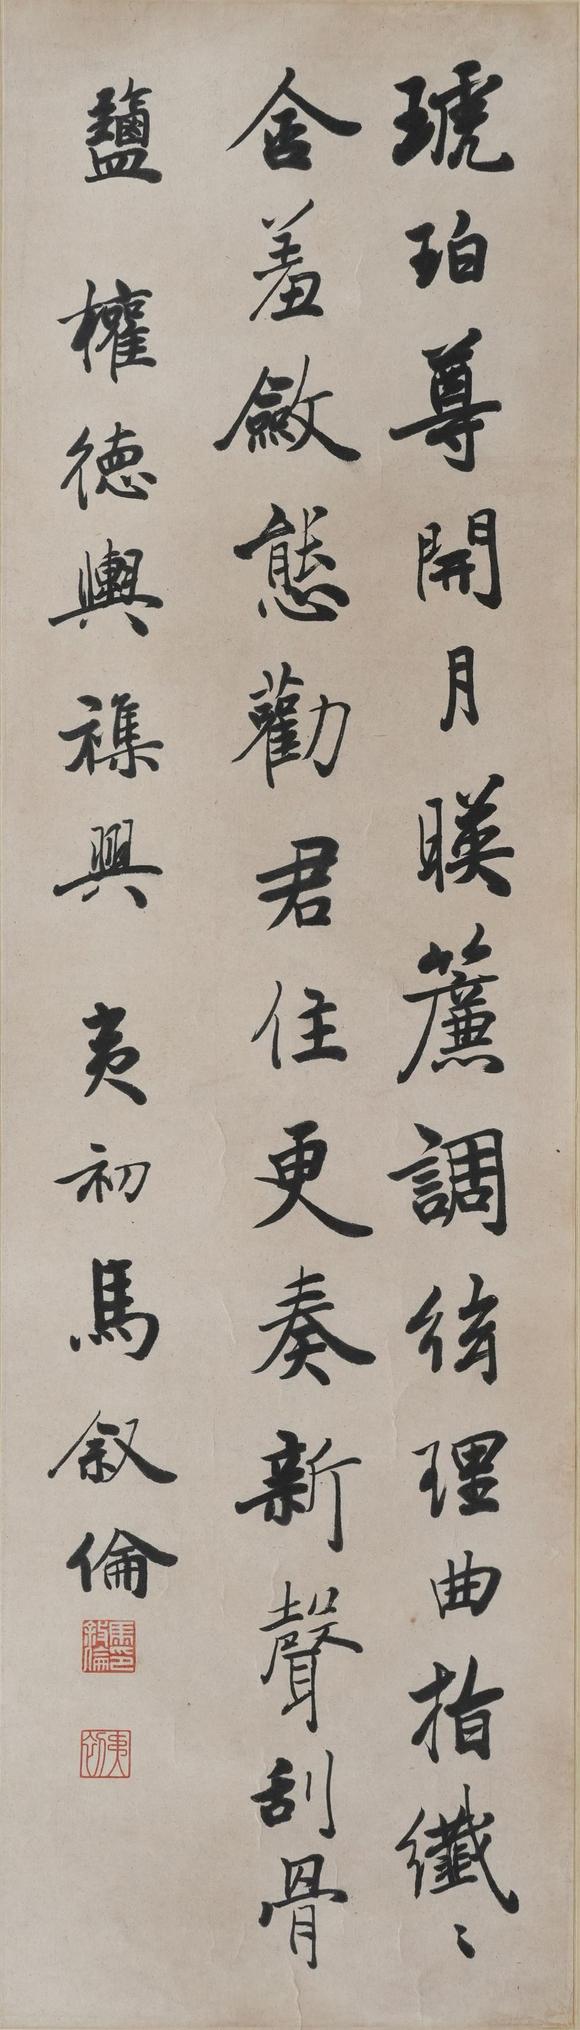 琥珀尊開月暎簾調絃理曲指纖〻
含羞斂態勸君住更奏新聲刮骨
鹽 權徳輿襍興 夷初馬叙倫
馬印敘倫
夷初